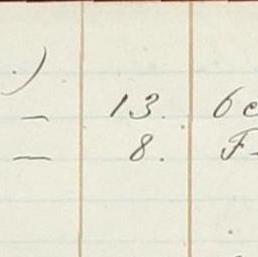 .)
— 13. 6
— 8. F